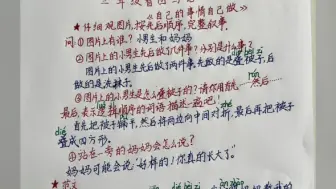 二年级看图写话
《自己的事情自己做》
★仔细观图片,按先后顺序,完整叙事。
问①图片上有谁?小男生和妈妈
②图片上的小男生先后做了几件事?分别是什么事?
图片上的小男生先后做了两件事,先做的是叠被子,后
做的是洗袜子。
③图片上的小男生是怎么叠被子的?请你用首先……然后……
最后,表示逻辑顺序的词语描述一遍吧!
首先把被子铺平,然后将两边向中间对折,最后再把被子
叠成四方形。
④站在一旁的妈妈会怎么说?
妈妈可能会说"好样的!你真的长大了。"
★范文